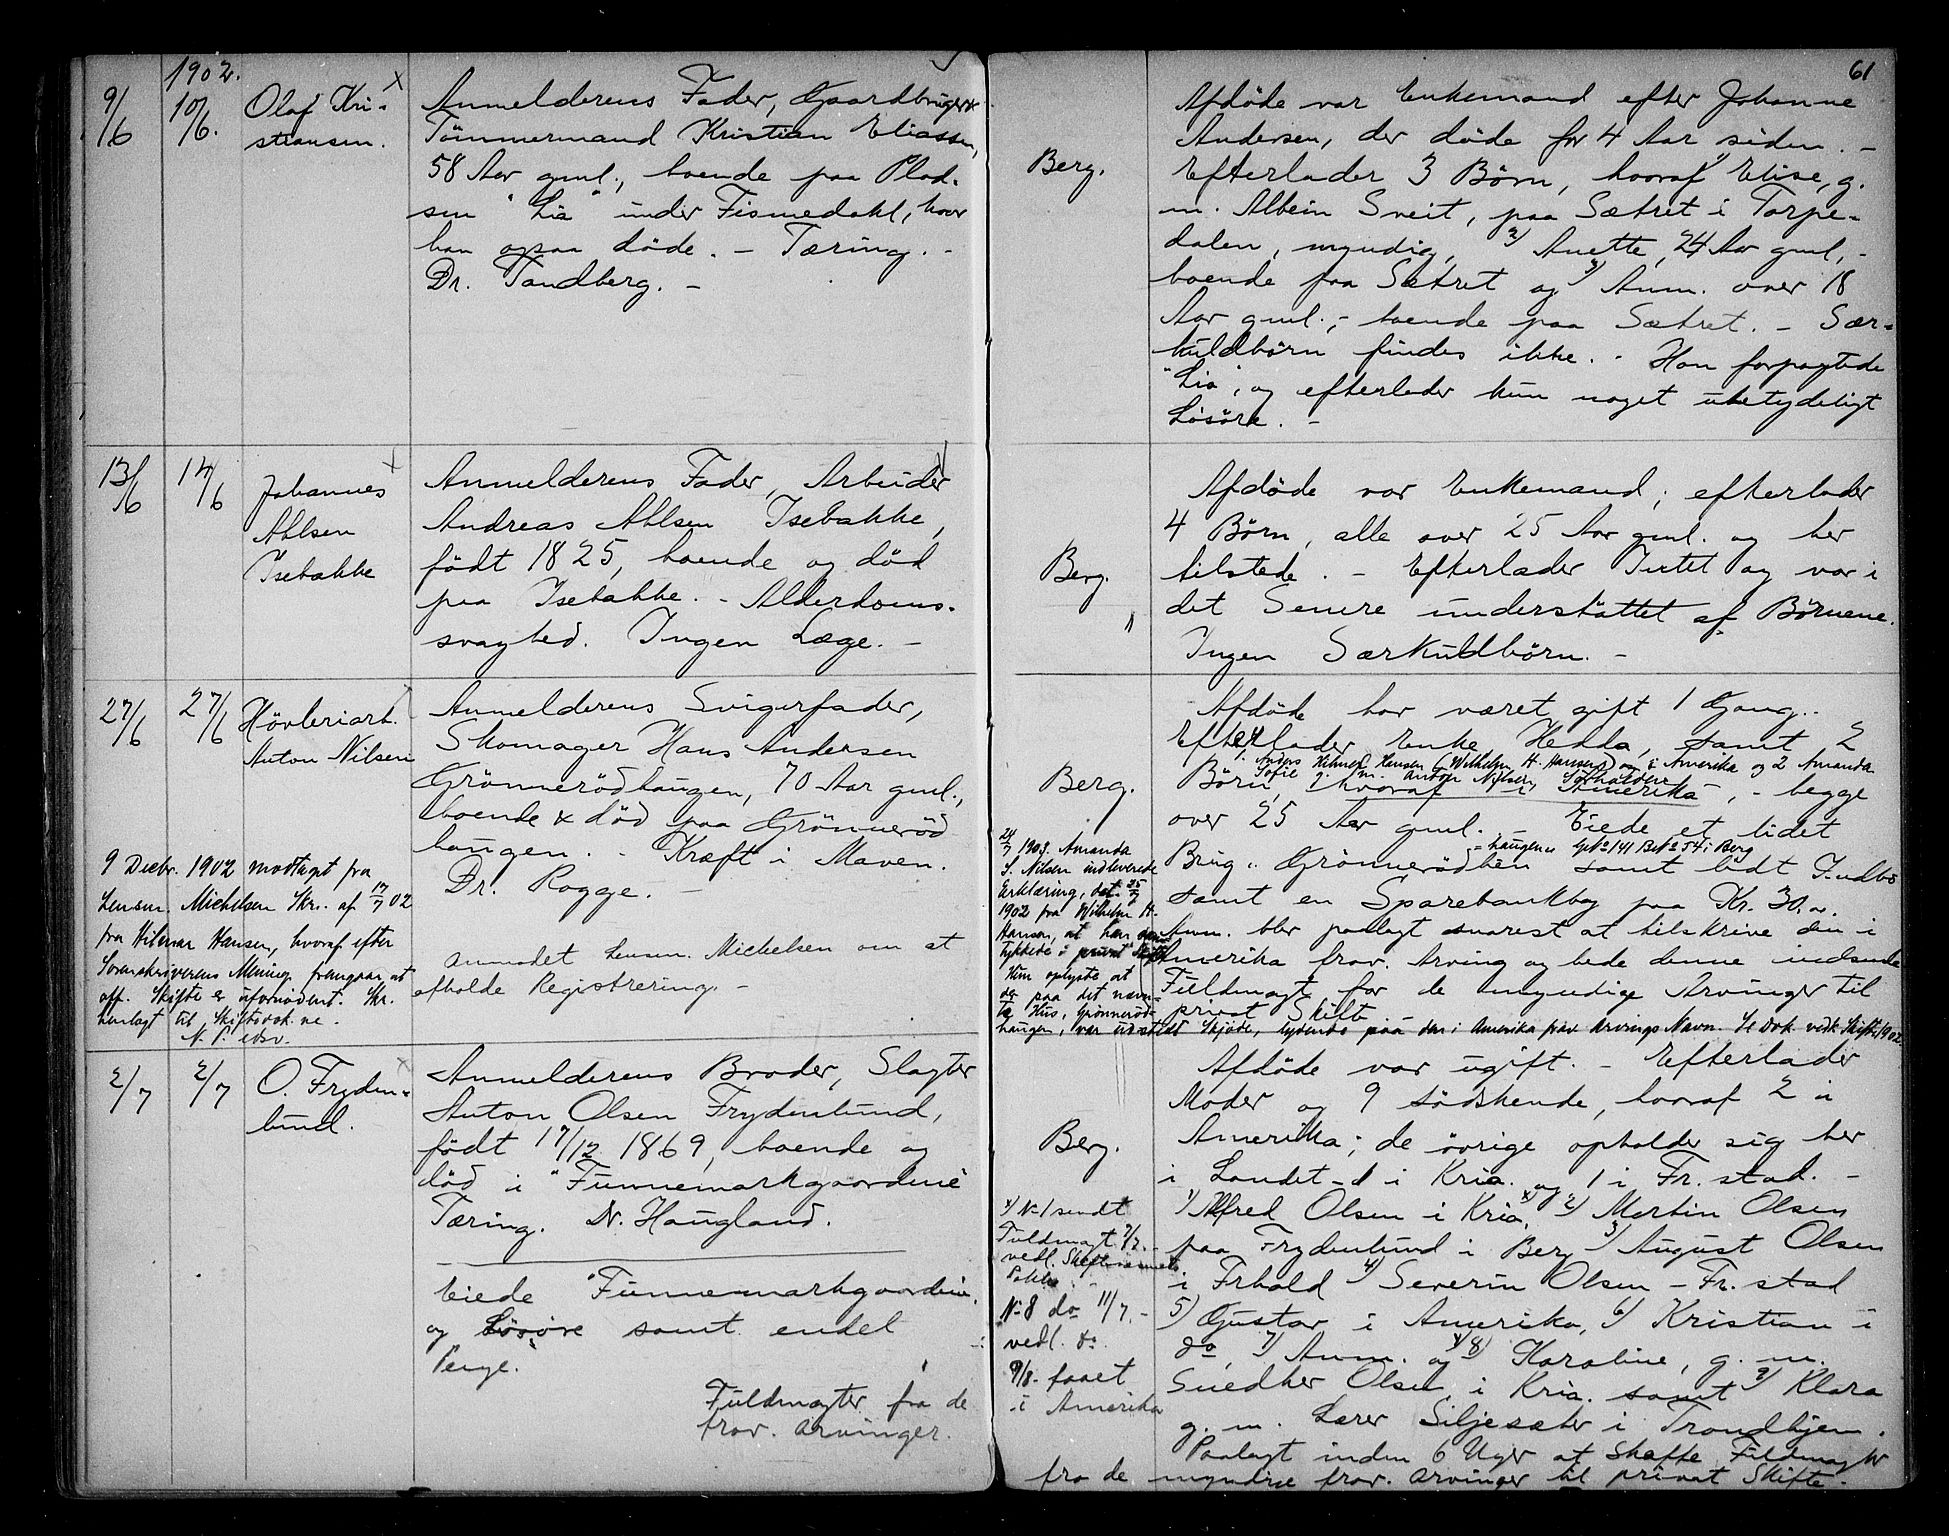 1902.
9/6
10/6.
Olaf Kri-
stiansen.
Anmelderens Fader, Gaardbruger &
Tömmermand Kristian Eliassen,
58 Aar gml., boende paa Plad-
sen "Lia" under Fismedahl, hvor
han ogsaa döde. – Tæring. –
Dr. Tandberg. –
61
Berg.
Afdöde var Enkemand efter Johanne
Andersen, der döde for 4 Aar siden. –
Efterlader 3 Börn, hvoraf 1) Elise, g.
m. Albein Sveit, paa Sætret i Torpe-
dalen, myndig, 2) Anette, 24 Aar gml., –
boende paa Sætret og 3) Anm. over 18
Aar gml., – boende paa Sætret. – Sær-
kuldbörn findes ikke. – Han forpagtede
"Lia", og efterlader kun noget ubetydeligt
Lösöre. –
13/6
14/6
Johannes
Ahlsen
Isebakke
Anmelderens Fader, Arbeider
Andreas Ahlsen Isebakke,
födt 1825, boende og död
paa Isebakke. – Alderdoms-
svaghed. Ingen Læge. –
Berg.
Afdöde var Enkemand; efterlader
4 Börn, alle over 25 Aar gml. og her
tilstede. – Efterlader Intet og var i
det Senere understöttet af Börnene.
Ingen Særkuldbörn. –
27/6
27/6
Hövleriarb.
Anton Nilsen
Anmelderens Svigerfader,
Skomager Hans Andersen
Grönnerödhaugen, 70 Aar gml.,
boende & död paa Grönneröd
haugen. – Kræft i Maven.
Dr. Rogge. –
anmodet Lensm. Michelsen om at
afholde Registrering. –
9 Decbr. 1902 modtaget fra
Lensm. Michelsen Skr. af 17/7 02
fra Hilmar Hansen, hvoraf efter
Sorenskriverens Mening fremgaar at
off. Skifte er ufornödent. Skr.
henlagt til Skiftedok.ne.
Berg.
Afdöde har været gift 1 Gang.
Efterlader Enke Hedda, samt 2
Anders Hilmar Hansen (Wilhelm H. Hansen) i Amerika og 2 Amanda
Sofie g. m. Anton Nilsen,
Börn, hvoraf 1 i Amerika, – begge
over 25 Aar gml. – Eiede et lidet
haugen Gno 141 Bno 54 i Berg
Brug "Grönnerödhen" samt lidt Indbo
samt en Sparebankbog paa Kr. 30,00.
Anm. blev paalagt snarest at tilskrive den i
Amerika frav. Arving og bede denne indsende
Fuldmagt for de myndige Arvinger til
privat Skifte
24/7 1903. Amanda
S. Nilsen indleverede
Erklæring, dat. 25/7
1902 fra Wilhelm H.
Hansen, at han sam-
tykkede i privat Skifte
Hun oplyste at
der paa det nævn-
te Hus, Grönneröd-
haugen, var udstedt Skjöde, lydende paa den i Amerika frav. Arvings Navn. Se Dok. vedk. Skifte 1902.
2/7
2/7
O. Fryden-
lund.
Anmelderens Broder, Slagter
Anton Olsen Frydenlund,
födt 17/12 1869, boende og
död i "Funnemarkgaardene"
Tæring. Dr. Haugland.
Eiede "Funnemarkgaardene"
og Lösöre samt endel
Penge.
Fuldmagter fra de
frav. arvinger.
Berg.
Afdöde var ugift. – Efterlader
Moder og 9 Södskende, hvoraf 2 i
Amerika; de övrige opholder sig her
i Landet – 1 i Kria. og 1 i Fr.stad. –
1) Alfred Olsen i Kria, 2) Martin Olsen
paa Frydenlund i Berg 3) August Olsen
i Frhald 4) Severin Olsen – Fr.stad
5) Gustav i Amerika, 6) Kristian i
do, 7) Anm. og 8) Karoline, g. m.
Snedker Olsen i Kria. samt 9) Klara
g. m. Lærer Siljesæter i Trondhjem.
Paalagt inden 6 Uger at skaffe Fuldmagter
fra de myndige frav. arvinger til privat Skifte.
x) No 1 sendt
Fuldmagt 7/7. –
vedl. Skifte
No 8 do 11/7. –
vedl. do.
9/8. faaet
i Amerika